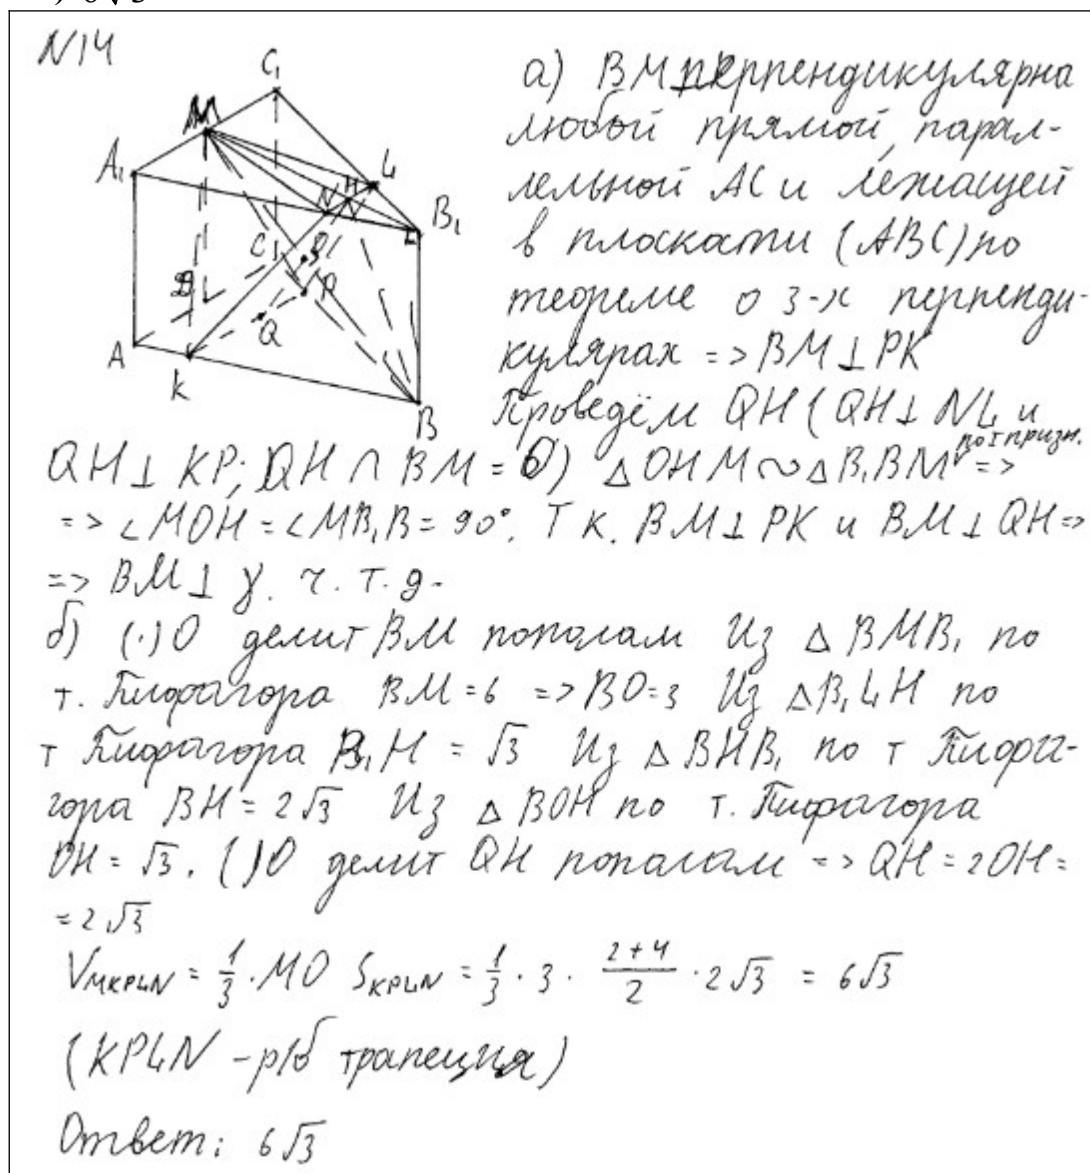 6√3
N14
C₁
M
A₁
N
H
L
B₁
C
O
P
D
Q
A
K
B
а) BM перпендикулярна
любой прямой, парал-
лельной AC и лежащей
в плоскати (ABC) по
теореме о 3-х перпенди-
кулярах => BM ⊥ PK
Проведём QH (QH ⊥ NL и
QH ⊥ KP; QH ∩ BM = O) △OHM ∾ △B₁BM по 1 призн. =>
=> ∠MOH = ∠MB₁B = 90°. Т к. BM ⊥ PK и BM ⊥ QH =>
=> BM ⊥ γ. ч. т. д.
б) (·) O делит BM пополам Из △BMB₁ по
т. Пифагора BM = 6 => BO = 3 Из △B₁LH по
т Пифагора B₁H = √3 Из △BHB₁ по т Пифа-
гора BH = 2√3 Из △BOH по т. Пифагора
OH = √3. (·) O делит QH пополам => QH = 2OH =
= 2√3
V_MKPLN = 1/3 · MO S_KPLN = 1/3 · 3 · (2+4)/2 · 2√3 = 6√3
(KPLN - р/б трапеция)
Ответ: 6√3